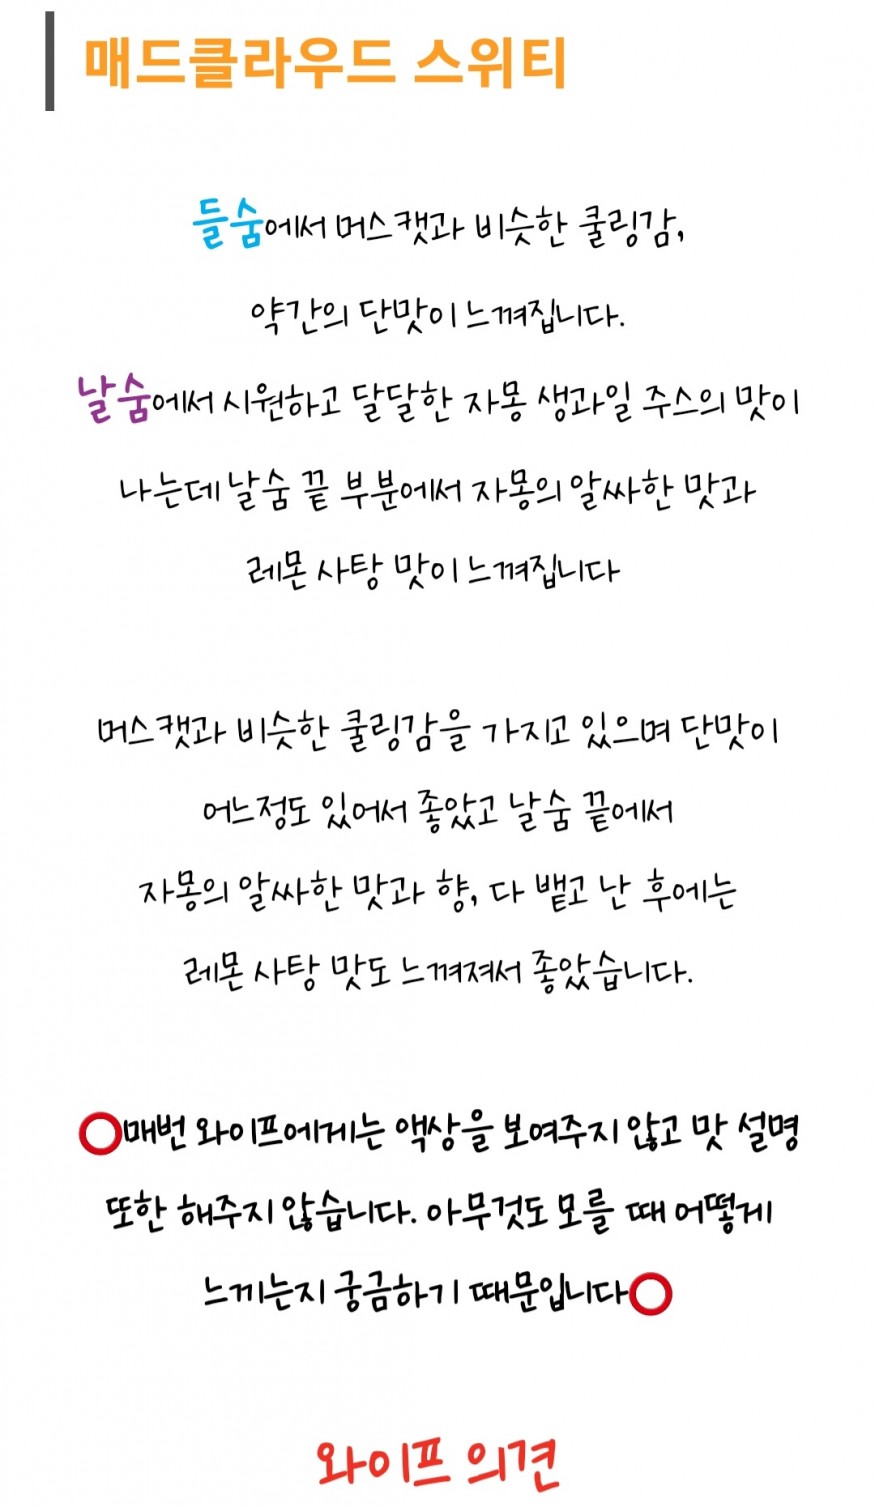 매드클라우드 스위티
들숨에서 머스캣과 비슷한 쿨링감,
약간의 단맛이 느껴집니다.
날숨에서 시원하고 달달한 자몽 생과일 주스의 맛이
나는데 날숨 끝 부분에서 자몽의 알싸한 맛과
레몬 사탕 맛이 느껴집니다
머스캣과 비슷한 쿨링감을 가지고 있으며 단맛이
어느정도 있어서 좋았고 날숨 끝에서
자몽의 알싸한 맛과 향, 다 뱉고 난 후에는
레몬 사탕 맛도 느껴져서 좋았습니다.
⭕매번 와이프에게는 액상을 보여주지 않고 맛 설명
또한 해주지 않습니다. 아무것도 모를 때 어떻게
느끼는지 궁금하기 때문입니다⭕
와이프 의견